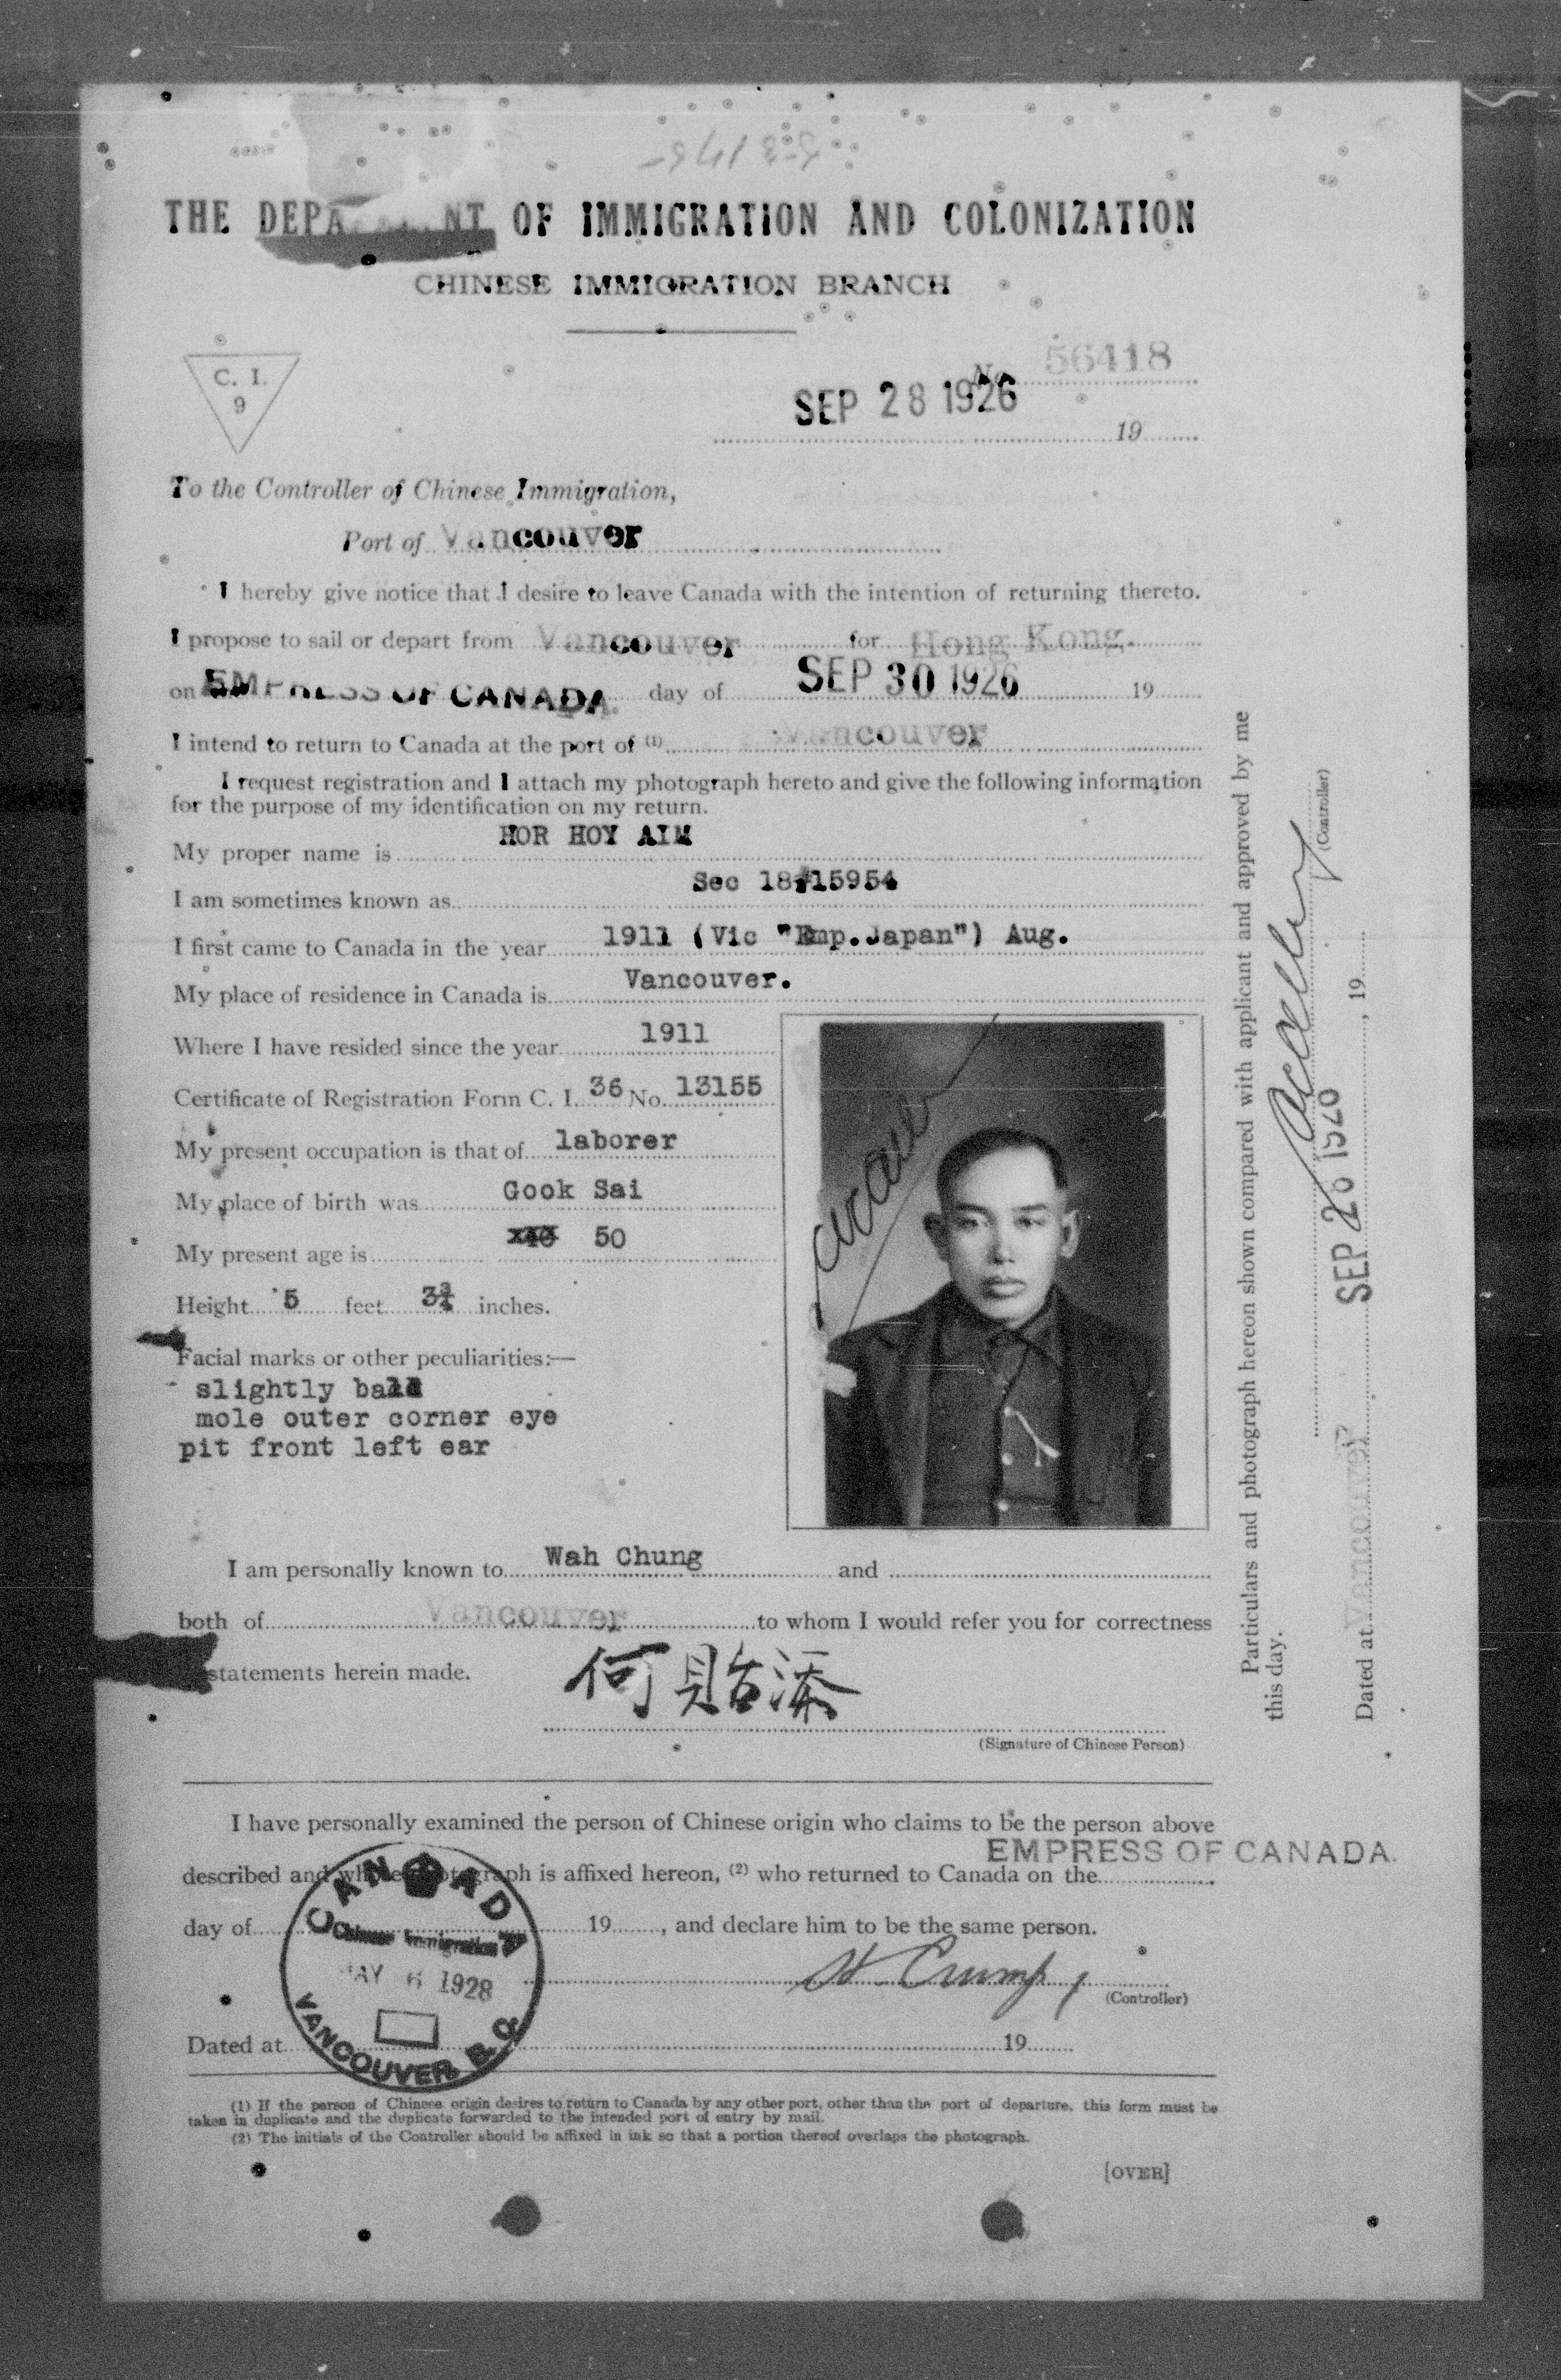 THE DEPA NT OF IMMIGRATION AND COLONIZATION
CHINESE IMMIGRATION BRANCH
C. I.
9
No. 56418
SEP 28 1926
19
To the Controller of Chinese Immigration,
Port of Vancouver
I hereby give notice that I desire to leave Canada with the intention of returning thereto.
I propose to sail or depart from Vancouver for Hong Kong.
on EMPRESS OF CANADA. day of SEP 30 1926 19
I intend to return to Canada at the port of (1) Vancouver
I request registration and I attach my photograph hereto and give the following information
for the purpose of my identification on my return.
My proper name is HOR HOY AIM
I am sometimes known as Sec 18#15954
I first came to Canada in the year 1911 (Vic "Emp.Japan") Aug.
My place of residence in Canada is Vancouver.
Where I have resided since the year 1911
Certificate of Registration Form C. I. 36 No. 13155
My present occupation is that of laborer
My place of birth was Gook Sai
My present age is 50
Height 5 feet 3¾ inches.
Facial marks or other peculiarities:—
slightly bald
mole outer corner eye
pit front left ear
I am personally known to Wah Chung and
both of Vancouver to whom I would refer you for correctness
statements herein made.
何貽添
(Signature of Chinese Person)
I have personally examined the person of Chinese origin who claims to be the person above
EMPRESS OF CANADA.
described and whose photograph is affixed hereon, (2) who returned to Canada on the
day of 19 , and declare him to be the same person.
H. Crump
(Controller)
Dated at 19
CANADA
Chinese Immigration
MAY 6 1928
VANCOUVER B.C.
(1) If the person of Chinese origin desires to return to Canada by any other port, other than the port of departure, this form must be
taken in duplicate and the duplicate forwarded to the intended port of entry by mail.
(2) The initials of the Controller should be affixed in ink so that a portion thereof overlaps the photograph.
[OVER]
Particulars and photograph hereon shown compared with applicant and approved by me
this day.
(Controller)
Dated at Vancouver SEP 19